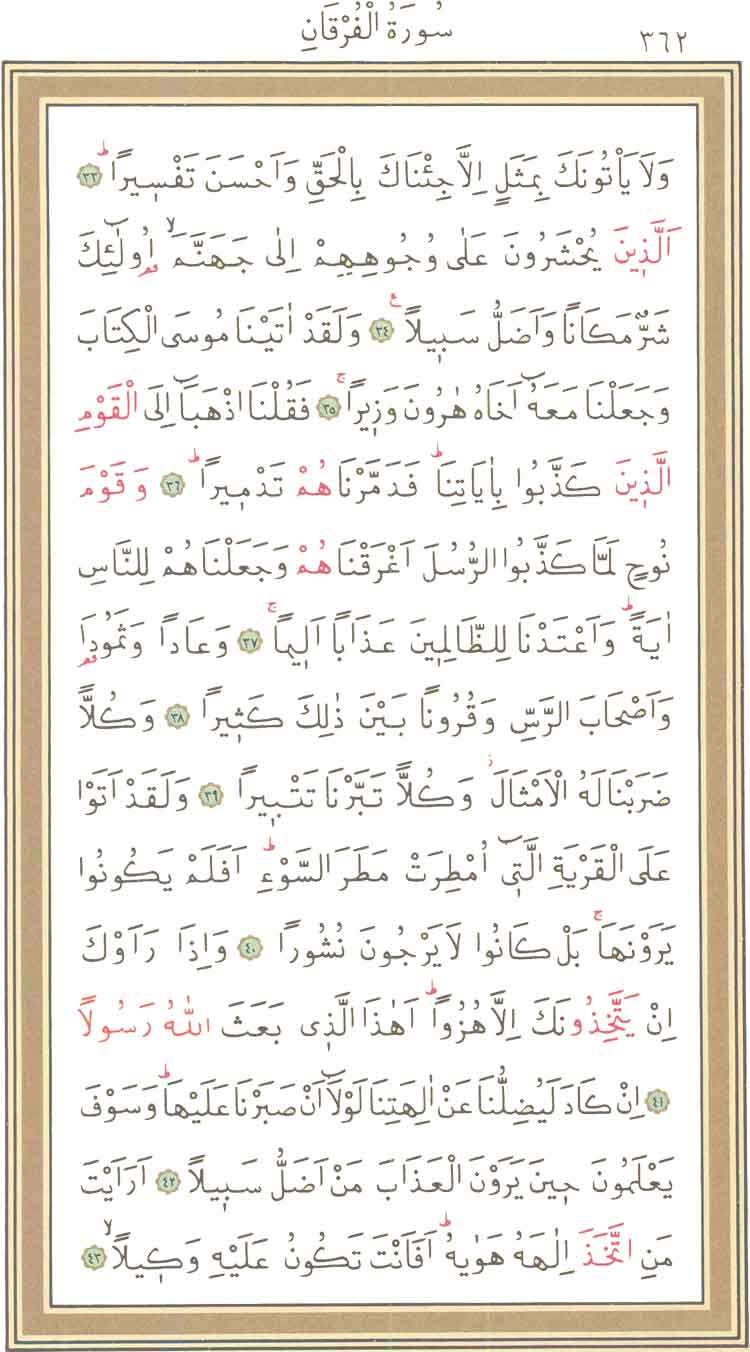 ٣٦٢
سُورَةُ الْفُرْقَانِ
وَلَا يَأْتُونَكَ بِمَثَلٍ اِلَّا جِئْنَاكَ بِالْحَقِّ وَاَحْسَنَ تَفْسٖيرًاۜ ٣٣
اَلَّذٖينَ يُحْشَرُونَ عَلٰى وُجُوهِهِمْ اِلٰى جَهَنَّمَۙ اُو۬لٰٓئِكَ
شَرٌّ مَكَانًا وَاَضَلُّ سَبٖيلًاࣖ ٣٤ وَلَقَدْ اٰتَيْنَا مُوسَى الْكِتَابَ
وَجَعَلْنَا مَعَهُٓ اَخَاهُ هٰرُونَ وَزٖيرًاۚ ٣٥ فَقُلْنَا اذْهَبَٓا اِلَى الْقَوْمِ
الَّذٖينَ كَذَّبُوا بِاٰيَاتِنَاۜ فَدَمَّرْنَاهُمْ تَدْمٖيرًاۜ ٣٦ وَقَوْمَ
نُوحٍ لَمَّا كَذَّبُوا الرُّسُلَ اَغْرَقْنَاهُمْ وَجَعَلْنَاهُمْ لِلنَّاسِ
اٰيَةًۜ وَاَعْتَدْنَا لِلظَّالِمٖينَ عَذَابًا اَلٖيمًاۚ ٣٧ وَعَادًا وَثَمُودَا۬
وَاَصْحَابَ الرَّسِّ وَقُرُونًا بَيْنَ ذٰلِكَ كَثٖيرًا ٣٨ وَكُلًّا
ضَرَبْنَا لَهُ الْاَمْثَالَؗ وَكُلًّا تَبَّرْنَا تَتْبٖيرًا ٣٩ وَلَقَدْ اَتَوْا
عَلَى الْقَرْيَةِ الَّتٖٓي اُمْطِرَتْ مَطَرَ السَّوْءِۜ اَفَلَمْ يَكُونُوا
يَرَوْنَهَاۚ بَلْ كَانُوا لَا يَرْجُونَ نُشُورًا ٤٠ وَاِذَا رَاَوْكَ
اِنْ يَتَّخِذُونَكَ اِلَّا هُزُوًاۜ اَهٰذَا الَّذٖي بَعَثَ اللّٰهُ رَسُولًا
٤١ اِنْ كَادَ لَيُضِلُّنَا عَنْ اٰلِهَتِنَا لَوْلَٓا اَنْ صَبَرْنَا عَلَيْهَاۜ وَسَوْفَ
يَعْلَمُونَ حٖينَ يَرَوْنَ الْعَذَابَ مَنْ اَضَلُّ سَبٖيلًا ٤٢ اَرَاَيْتَ
مَنِ اتَّخَذَ اِلٰهَهُ هَوٰيهُۜ اَفَاَنْتَ تَكُونُ عَلَيْهِ وَكٖيلًاۙ ٤٣